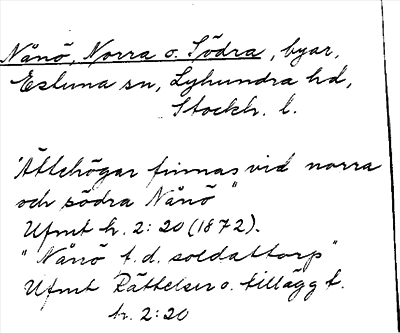 Nånö, Norra o. Södra, byar,
Estuna sn, Lyhundra hd,
Stockh. l.
"Ättehögar finnas vid norra
och södra Nånö"
Ufmt h. 2: 20 (1872).
"Nånö f.d. soldattorp"
Ufmt Rättelser o. tillägg t.
h. 2:20